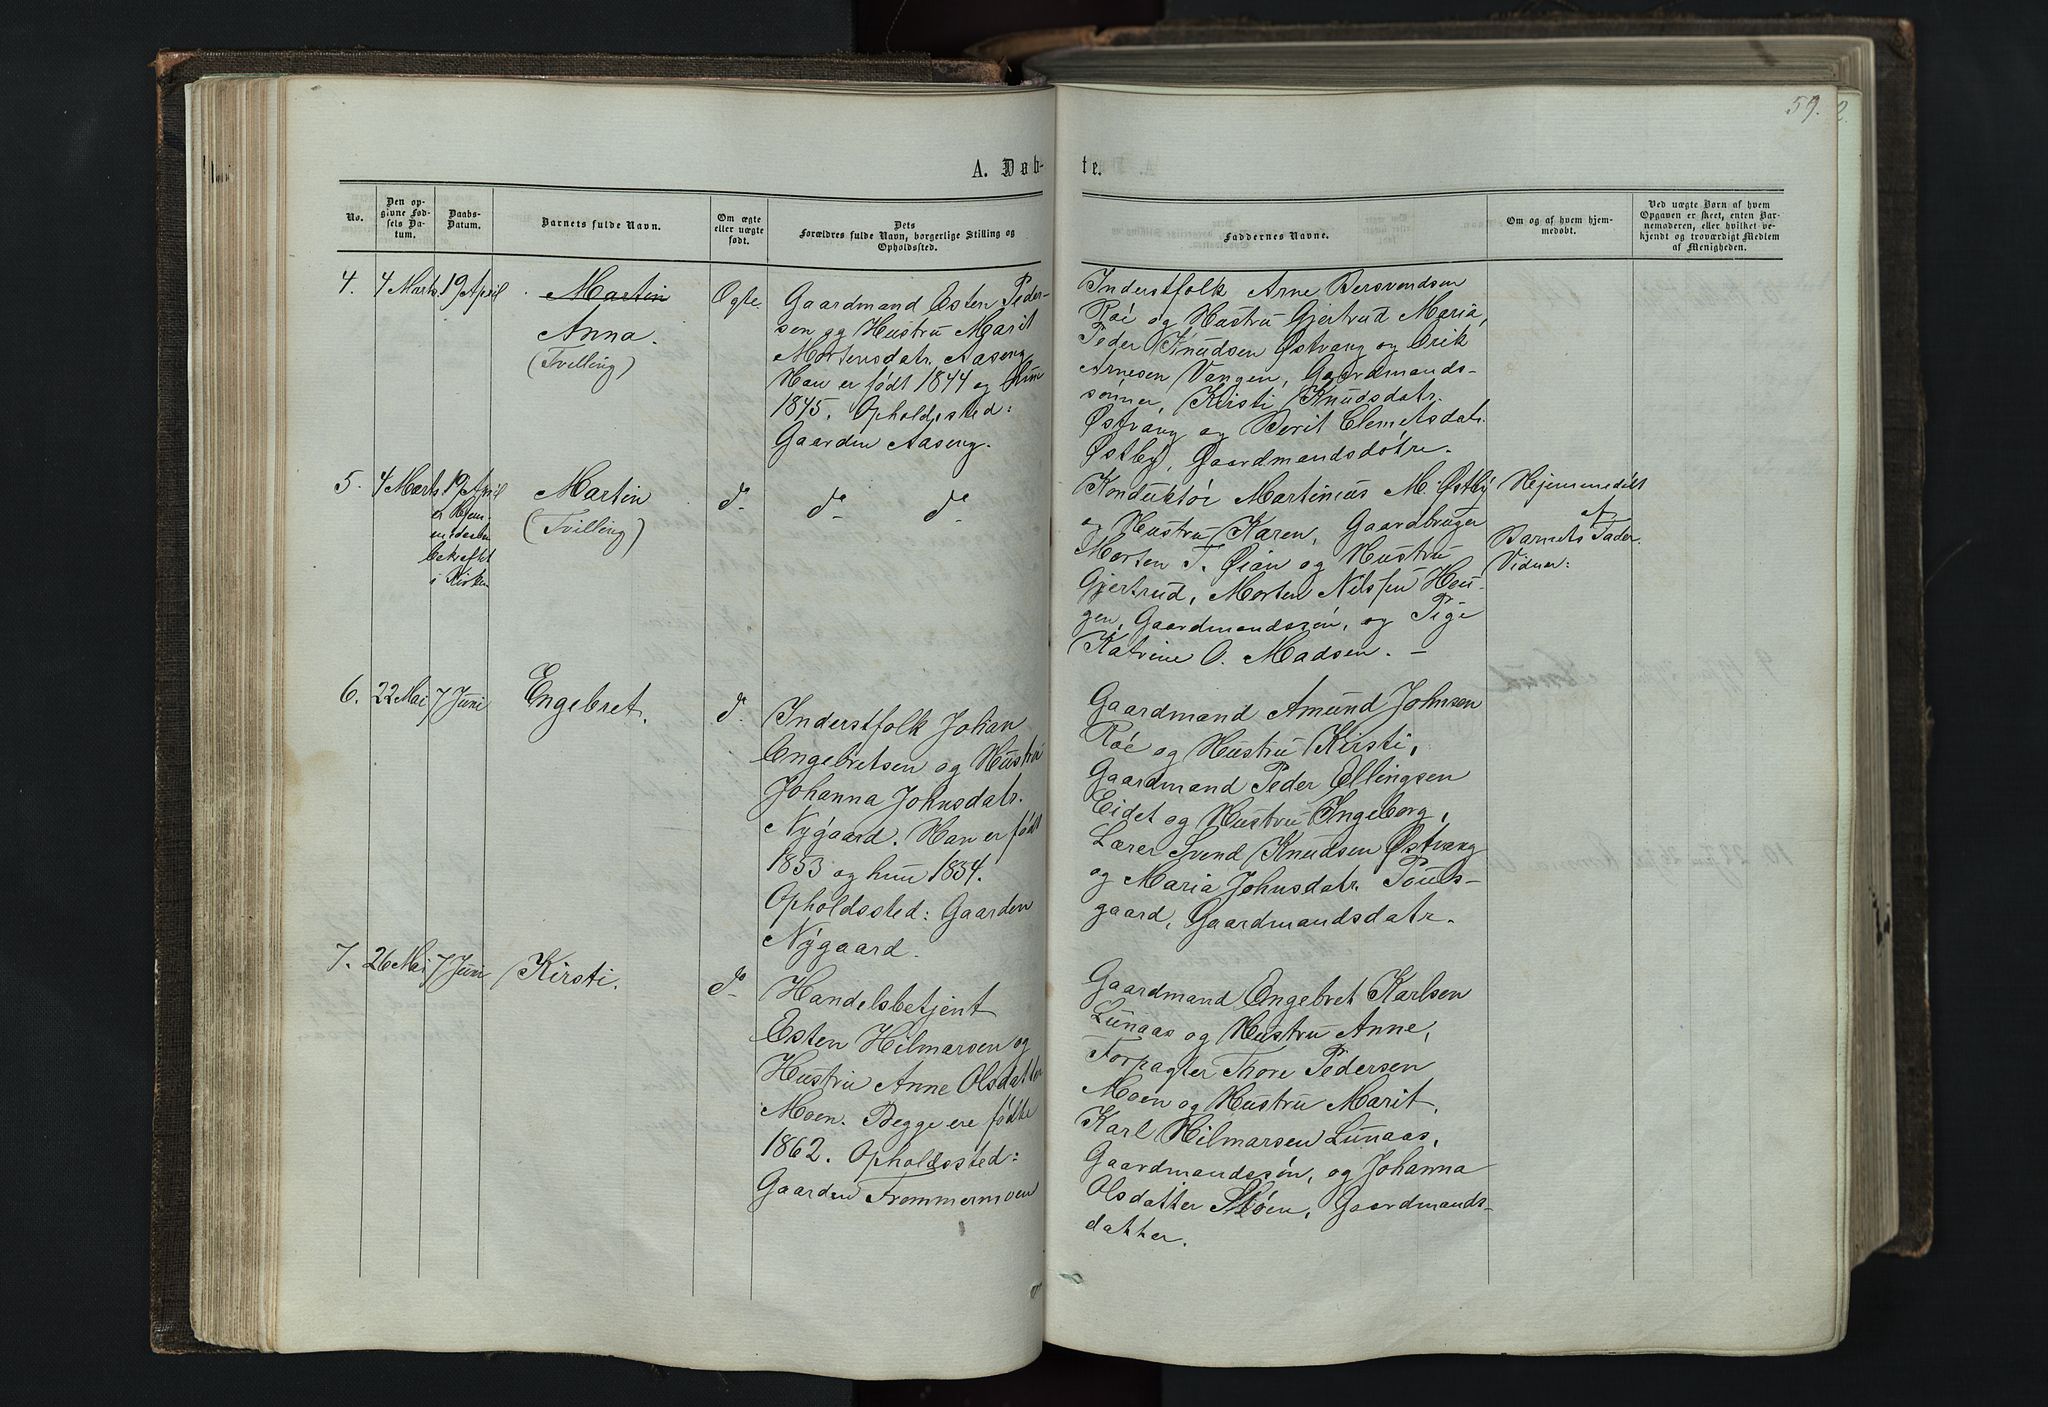 59. 2.
A. Døb-
te.
No.
Den op-
givne Fød-
sels Da-
tum.
Daabs-
Datum.
Barnets fulde Navn.
Om ægte
eller uægte
født.
Dets
Forældres fulde Navn, borgerlige Stilling og
Opholdssted.
Faddernes Navne.
Om og af hvem hjem-
medøbt.
Ved uægte Børn af hvem
Opgaven er skeet, enten Bar-
nemoderen, eller hvilket ve-
kjendt og troværdigt Medlem
af Menigheden.
4. 4 Marts 19 April Martin Ægte.
Anna.
(Tvilling)
Gaardmand Esten Peder-
sen og Hustru Marit
Mortensdatr. Aaseng
Han er født 1844 og hun
1845. Opholdssted:
Gaarden Aaseng.
Inderstfolk Arne Bersvendsen
Røe og Hustru Gjertrud Maria,
Peder Knudsen Østvang og Erik
Arnesen Vangen, Gaardmands-
sønner, Kirsti Knudsdatr.
Østvang og Berit Clemetsdatr.
Østby, Gaardmandsdøtre.
5. 4 Marts 19 April Martin do do do
(Tvilling)
er Hjem-
medaaben
bekræftet
i Kirken
Konduktør Martinus M. Østby
og Hustru Karen, Gaardbruger
Morten T. Øian og Hustru
Gjertrud, Morten Nilssen Hau-
gen, Gaardmandssøn, og Pige
Katrine O. Madsen. —
Hjemmedøbt
af
Barnets Fader.
Vidner:
6. 22 Mai 7 Juni Engebret. do
Inderstfolk Johan
Engebretsen og Hustru
Johanna Johnsdatr.
Nygaard. Han er født
1853 og hun 1854.
Opholdssted: Gaarden
Nygaard.
Gaardmand Amund Johnsen
Røe og Hustru Kirsti,
Gaardmand Peder Ellingsen
Eidet og Hustru Ingeborg,
Lærer Svend Knudsen Østvang
og Maria Johnsdatr. Pouls-
gaard, Gaardmandsdatr.
7. 26 Mai 7 Juni Kirsti. do
Handelsbetjent
Esten Hilmarsen og
Hustru Anne Olsdatter
Moen. Begge ere fødte
1862. Opholdssted:
Gaarden Frommermoen
Gaardmand Engebret Karlsen
Lunaas og Hustru Anne,
Forpagter Thore Pedersen
Moen og Hustru Marit,
Karl Hilmarsen Lunaas,
Gaardmandssøn, og Johanna
Olsdatter Moen, Gaardmands-
datter.